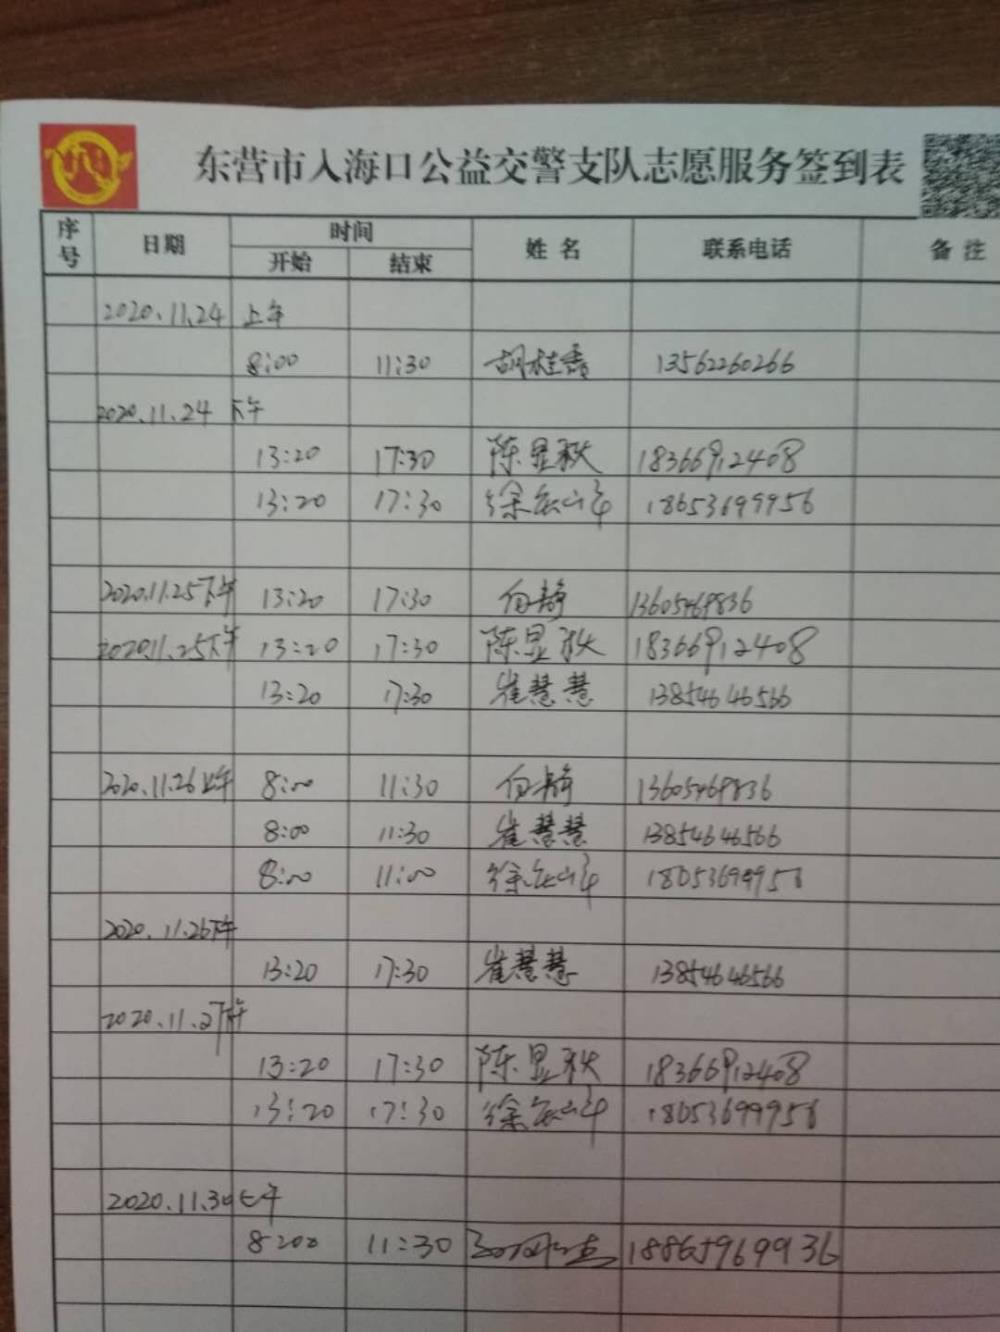 东营市入海口公益交警支队志愿服务签到表
序号 日期 时间 开始 结束 姓名 联系电话 备注
2020.11.24 上午
8:00 11:30 胡桂香 13562260266
2020.11.24 下午
13:20 17:30 陈显秋 18366912408
13:20 17:30 18053699956
2020.11.25下午 13:20 17:30 向静 13605469836
2020.11.25下午 13:20 17:30 陈显秋 18366912408
13:20 17:30 崔慧慧 13854646566
2020.11.26上午 8:00 11:30 向静 13605469836
8:00 11:30 崔慧慧 13854646566
8:00 11:00 18053699956
2020.11.26下午
13:20 17:30 崔慧慧 13854646566
2020.11.27下午
13:20 17:30 陈显秋 18366912408
13:20 17:30 18053699956
2020.11.30上午
8:00 11:30 18865969936